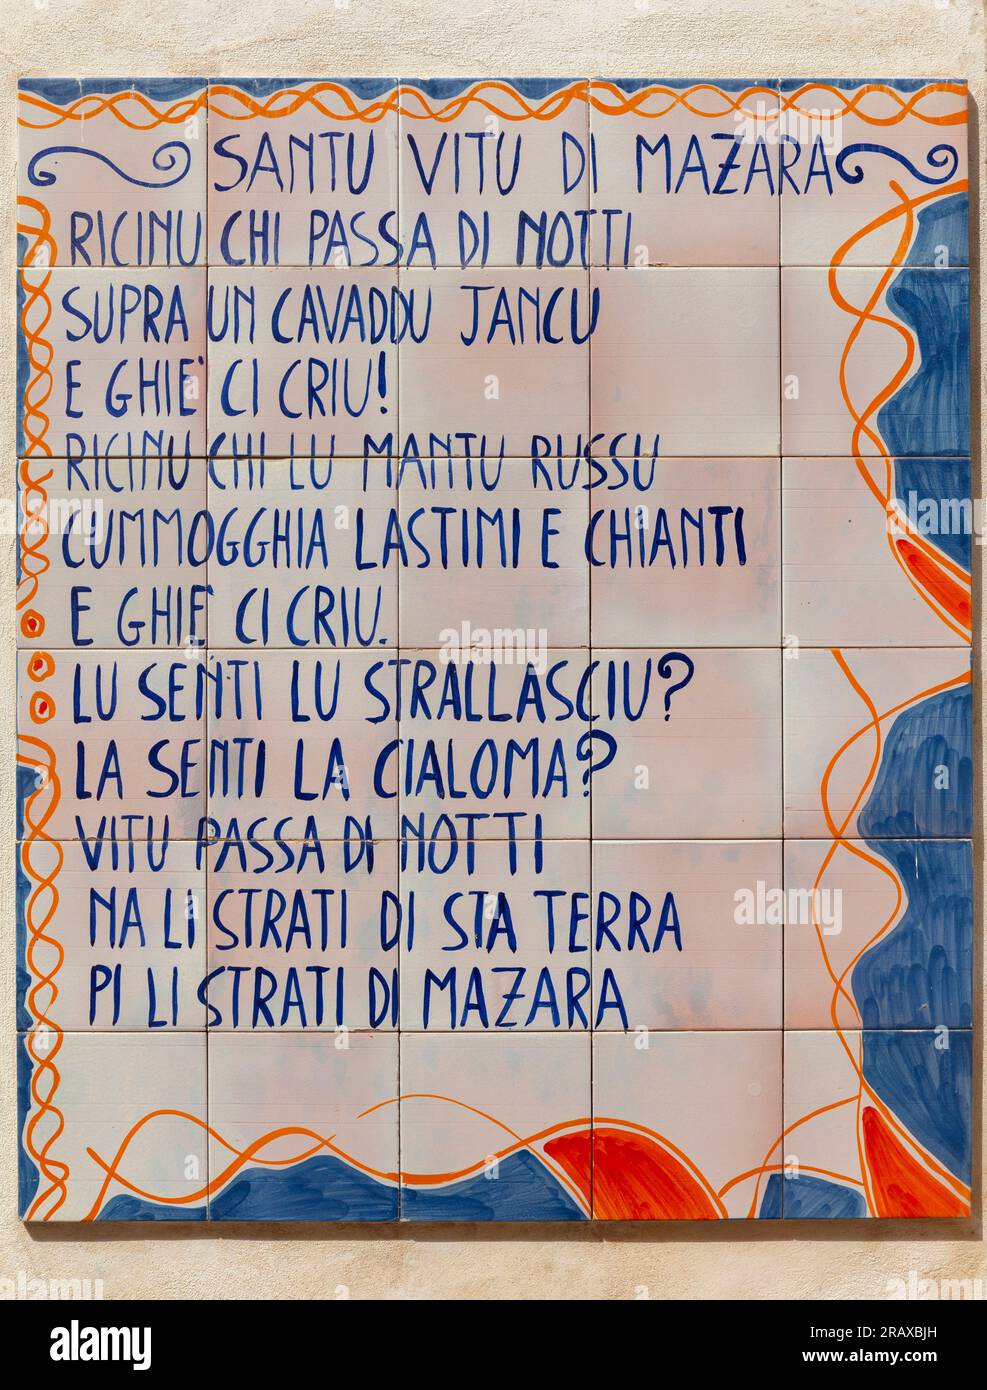 SANTU VITU DI MAZARA
RICINU CHI PASSA DI NOTTI
SUPRA UN CAVADDU JANCU
E GHIE' CI CRIU!
RICINU CHI LU MANTU RUSSU
CUMMOGGHIA LASTIMI E CHIANTI
E GHIE' CI CRIU.
LU SENTI LU STRALLASCIU?
LA SENTI LA CIALOMA?
VITU PASSA DI NOTTI
NA LI STRATI DI STA TERRA
PI LI STRATI DI MAZARA
alamy
Image ID: 2RAXBJH
www.alamy.com